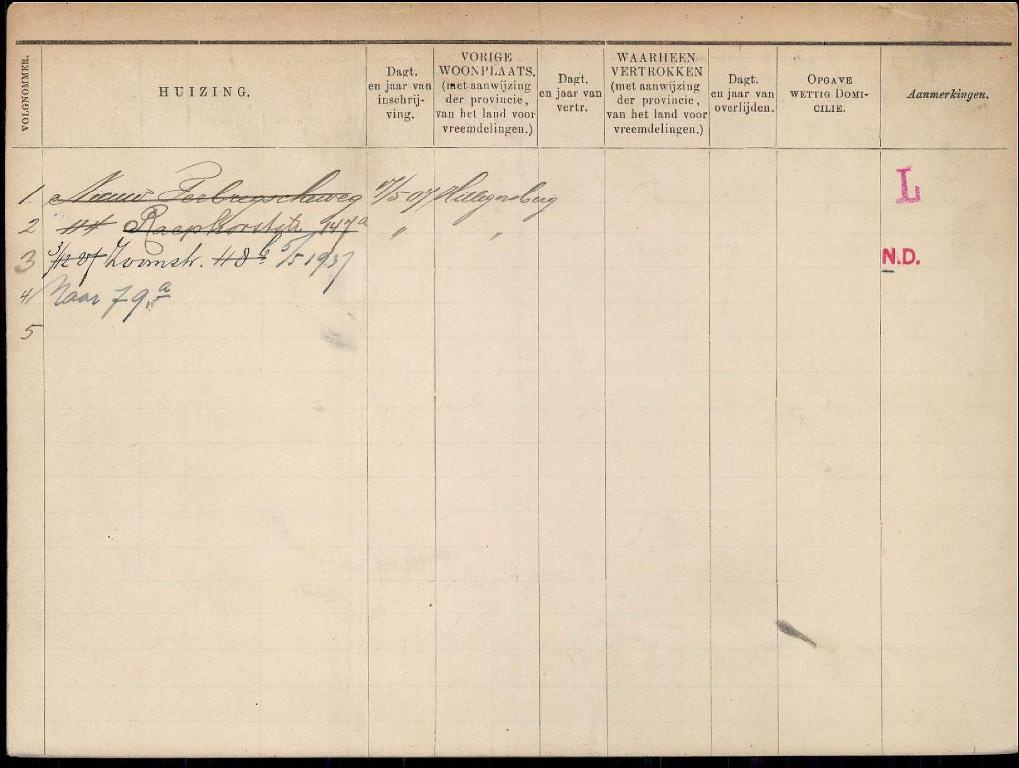 VOLGNOMMER.
HUIZING.
Dagt. en jaar van inschrijving.
VORIGE WOONPLAATS. (met aanwijzing der provincie, van het land voor vreemdelingen.)
Dagt. en jaar van vertr.
WAARHEEN VERTROKKEN (met aanwijzing der provincie, van het land voor vreemdelingen.)
Dagt. en jaar van overlijden.
OPGAVE WETTIG DOMICILIE.
Aanmerkingen.
1 Nieuwe Terbregscheweg 17/5 07 Hillegersberg L
2 44 147a " "
3 3/12 07 Zoomstr. 48b 5/5 1937 N.D.
4 Naar 79a
5